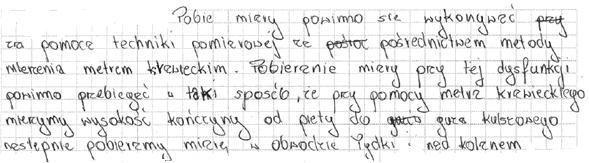 Pobie miary powinno sie wykonywać
za pomocą techniki pomiarowej ze pośrednictwem metody
mierzenia metrem krawieckim. Pobieranie miary przy tej dysfunkcji
powinno przebiegać w taki sposób, że przy pomocy metra krawieckiego
mierzymy wysokość kończyny od pięty do guza kulszowego
następnie pobieramy miarę w obwodzie łydki i nad kolanem